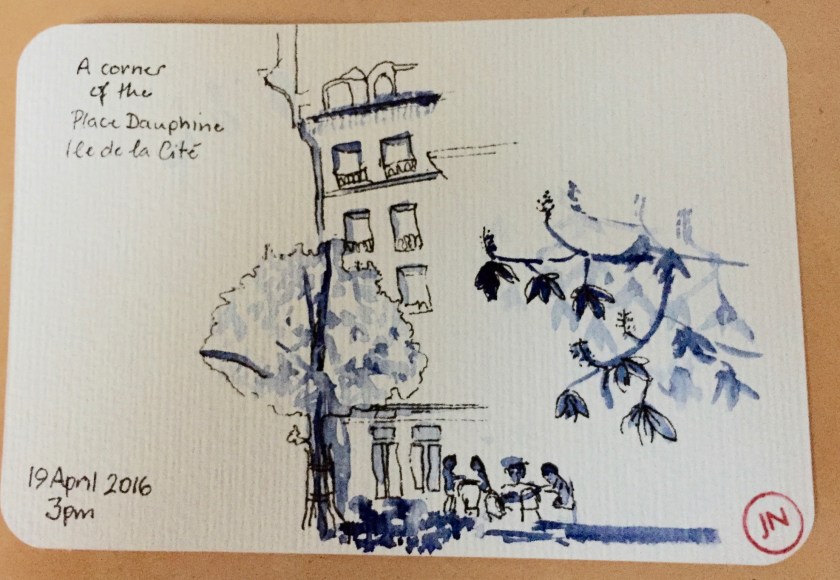 A corner
of the
Place Dauphine
Ile de la Cité
19 April 2016
3pm
JN